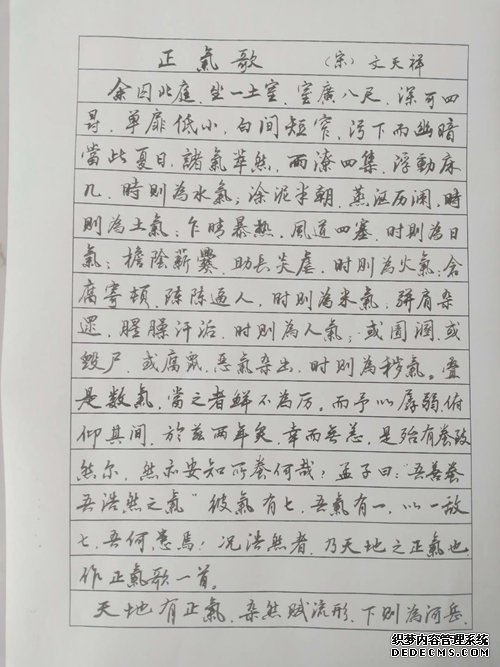 正氣歌 （宋）文天祥
余因北庭，坐一土室，室廣八尺，深可四
尋，單扉低小，白间短窄，污下而幽暗
當此夏日，諸氣萃然，雨潦四集，浮動床
几，時則為水氣；涂泥半朝，蒸沤历澜，時
則為土氣；乍晴暴热，風道四塞，时則為日
氣；檐陰薪爨，助長炎虐，时則為火氣；倉
腐寄頓，陈陈逼人，时則為米氣，骈肩杂
遝，腥臊汗垢，时則為人氣；或圊溷，或
毁尸，或腐鼠，恶氣杂出，时則為秽氣。叠
是数氣，當之者鲜不為厉。而予以孱弱，俯
仰其间，於兹两年矣，幸而無恙，是殆有养致
然尔，然亦安知所養何哉？孟子曰：“吾善養
吾浩然之氣”彼氣有七，吾氣有一，以一敵
七，吾何患焉！况浩然者，乃天地之正氣也
作正氣歌一首。
天地有正氣，杂然赋流形，下則為河岳，
织梦内容管理系统
DEDECMS.COM